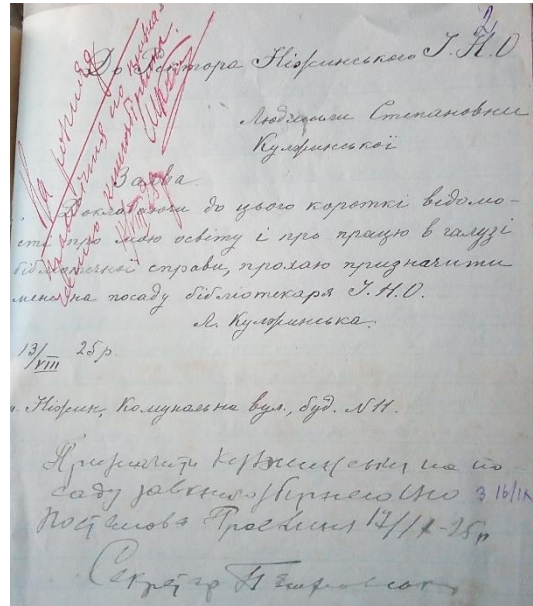 2
До Ректора Ніжинського І.Н.О
Людмили Степановни
Кулжинської
Заява.
Докладаючи до цього короткі відомо-
сти про мою освіту і про працю в галузі
бібліотечної справи, прохаю призначити
мене на посаду бібліотекаря І.Н.О.
Л. Кулжинська.
13/VIII 25 р.
м. Ніжин, Комунальна вул., буд. N 11.
Призначити Кулжинську на по
саду
з 16/IX
Постанова 17/IX-25 р
Секретар